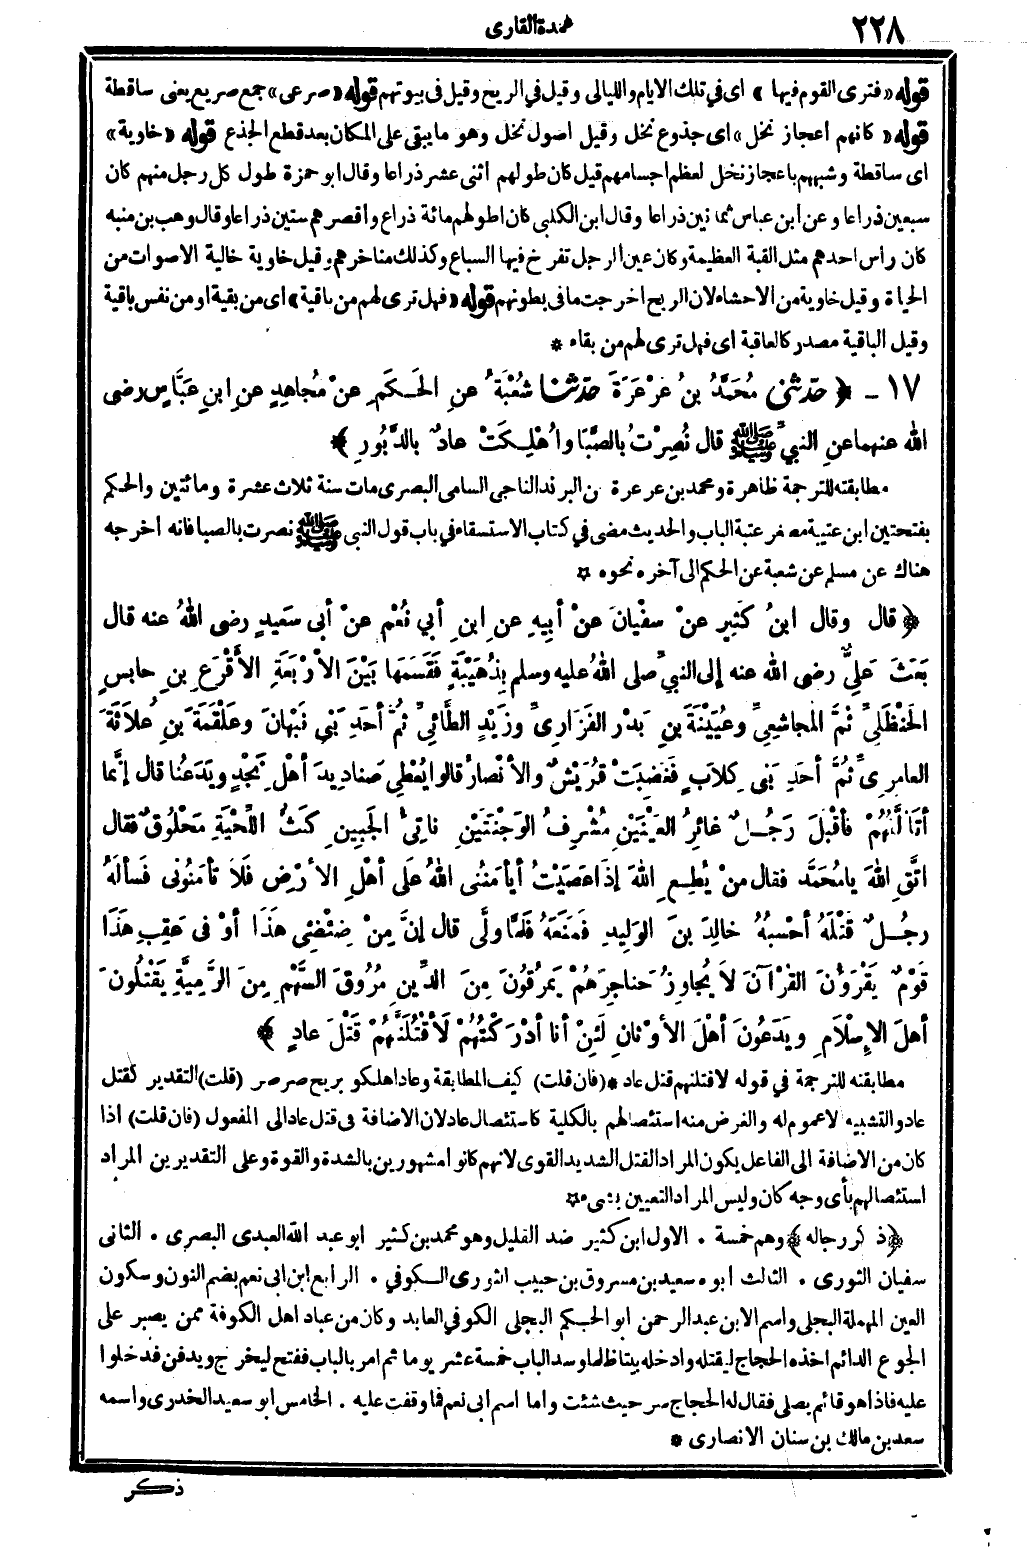 ٢٢٨
عمدة القارى
قوله «فترى القوم فيها» اى فى تلك الايام والليالى وقيل في الريح وقيل فى بيوتهم قوله «صرعى» جمع صريع يعنى ساقطة
قوله «كانهم اعجاز نخل» اى جذوع نخل وقيل اصول نخل وهو ما يبقى على المكان بعد قطع الجذع قوله «خاوية»
اى ساقطة وشبههم باعجاز نخل لعظم اجسامهم قيل كان طولهم اثنى عشر ذراعا وقال ابو حمزة طول كل رجل منهم كان
سبعين ذراعا وعن ابن عباس ثمانين ذراعا وقال ابن الكلبى كان اطولهم مائة ذراع واقصرهم ستين ذراعا وقال وهب بن منبه
كان رأس احدهم مثل القبة العظيمة وكان عين الرجل تفرخ فيها السباع وكذلك مناخرهم وقيل خاوية خالية الاصوات من
الحياة وقيل خاوية من الاحشاء لان الريح اخرجت ما فى بطونهم قوله «فهل ترى لهم من باقية» اى من بقية او من نفس باقية
وقيل الباقية مصدر كالعاقبة اى فهل ترى لهم من بقاء *
١٧ - ﴿ حدثنى مُحَمَّدُ بنُ عَرْعَرَةَ حدثنا شُعْبَةُ عنِ الحَكَمِ عنْ مُجاهِدٍ عنِ ابنِ عَبَّاسٍ رضى
الله عنهما عنِ النبيِّ ﷺ قال نُصِرْتُ بالصَّبَا واُهْلِكَتْ عادٌ بالدَّبُورِ ﴾
مطابقته للترجمة ظاهرة ومحمد بن عرعرة بن البرند الناجى السامى البصرى مات سنة ثلاث عشرة ومائتين والحكم
بفتحتين ابن عتيبة مصغر عتبة الباب والحديث مضى فى كتاب الاستسقاء فى باب قول النبى ﷺ نصرت بالصبا فانه اخرجه
هناك عن مسلم عن شعبة عن الحكم الى آخره نحوه *
﴿ قال وقال ابنُ كَثِيرٍ عنْ سفْيانَ عنْ أبيهِ عنِ ابنِ أبي نُعْمٍ عنْ أبى سَعيدٍ رضى اللهُ عنه قال
بَعَثَ عَلِيٌّ رضى الله عنه إلى النبيِّ صلى اللهُ عليه وسلم بِذُهَيْبَةٍ فَقَسَمَها بَيْنَ الأرْبَعَةِ الأقْرَعِ بنِ حابِسٍ
الحَنْظَلِيِّ ثُمَّ المجاشعِيِّ وعُيَيْنَةَ بنِ بَدْرٍ الفَزَارِىِّ وزَيْدٍ الطَّائِيِّ ثُمَّ أحَدِ بَنِي نَبْهانَ وعَلْقَمَةَ بنِ عُلاَثَةَ
العامرِىِّ ثُمَّ أحَدِ بَنِى كِلابٍ فَغَضِبَتْ قُرَيْشٌ والأنْصارُ قالوا يُعْطِي صَنادِيدَ أهْلِ نَجْدٍ ويَدَعُنا قال إنَّما
أتَألَّفُهُمْ فأقْبَلَ رَجُلٌ غائِرُ العَيْنَيْنِ مُشْرِفُ الوَجْنَتَيْنِ ناتِئُ الجَبِينِ كَثُّ اللِّحْيَةِ مَحْلُوقٌ فقال
اتَّقِ اللهَ يا مُحَمَّد فقال منْ يُطِعِ اللهَ إذَا عَصَيْتُ أيأمَنُنى اللهُ عَلَى أهْلِ الأرْضِ فَلاَ تأمَنُونى فَسألَهُ
رجُلٌ قَتْلَهُ أحْسبُهُ خالِدَ بنَ الوَلِيدِ فمَنَعَهُ فَلَمَّا ولَّى قال إنَّ مِنْ ضِئْضِئِ هَذَا أوْ فى عَقِبِ هَذَا
قَوْمٌ يَقْرَؤُنَ القُرْآنَ لاَ يُجاوِزُ حَناجِرَهُمْ يَمرُقُونَ مِنَ الدِّينِ مُرُوقَ السَّهْمِ مِنَ الرَّمِيَّةِ يَقْتُلُونَ
أهلَ الإسْلاَمِ ويَدَعُونَ أهْلَ الأوْثانِ لَئِنْ أنا أدْرَكْتُهُمْ لأَقْتُلَنَّهُمْ قَتْلَ عادٍ ﴾
مطابقته للترجمة فى قوله لاقتلنهم قتل عاد * (فان قلت) كيف المطابقة وعاد اهلكو بريح صرصر (قلت) التقدير كقتل
عاد والتشبيه لا عموم له والغرض منه استئصالهم بالكلية كاستئصال عاد لان الاضافة فى قتل عاد الى المفعول (فان قلت) اذا
كان من الاضافة الى الفاعل يكون المراد القتل الشديد القوى لانهم كانوا مشهورين بالشدة والقوة وعلى التقديرين المراد
استئصالهم بأى وجه كان وليس المراد التعيين بشىء *
﴿ذكر رجاله﴾ وهم خمسة . الاول ابن كثير ضد القليل وهو محمد بن كثير ابو عبد الله العبدى البصرى . الثانى
سفيان الثورى . الثالث ابوه سعيد بن مسروق بن حبيب الثورى الكوفي . الرابع ابن ابى نعم بضم النون وسكون
العين المهملة البجلى واسم الابن عبد الرحمن ابو الحكم البجلى الكوفي العابد وكان من عباد اهل الكوفة ممن يصبر على
الجوع الدائم اخذه الحجاج ليقتله وادخله بيتا ظلما وسد الباب خمسة عشر يوما ثم امر بالباب ففتح ليخرج ويدفن فدخلوا
عليه فاذا هو قائم يصلى فقال له الحجاج سر حيث شئت واما اسم ابى نعم فما وقفت عليه . الخامس ابو سعيد الخدرى واسمه
سعد بن مالك بن سنان الانصارى *
ذكر